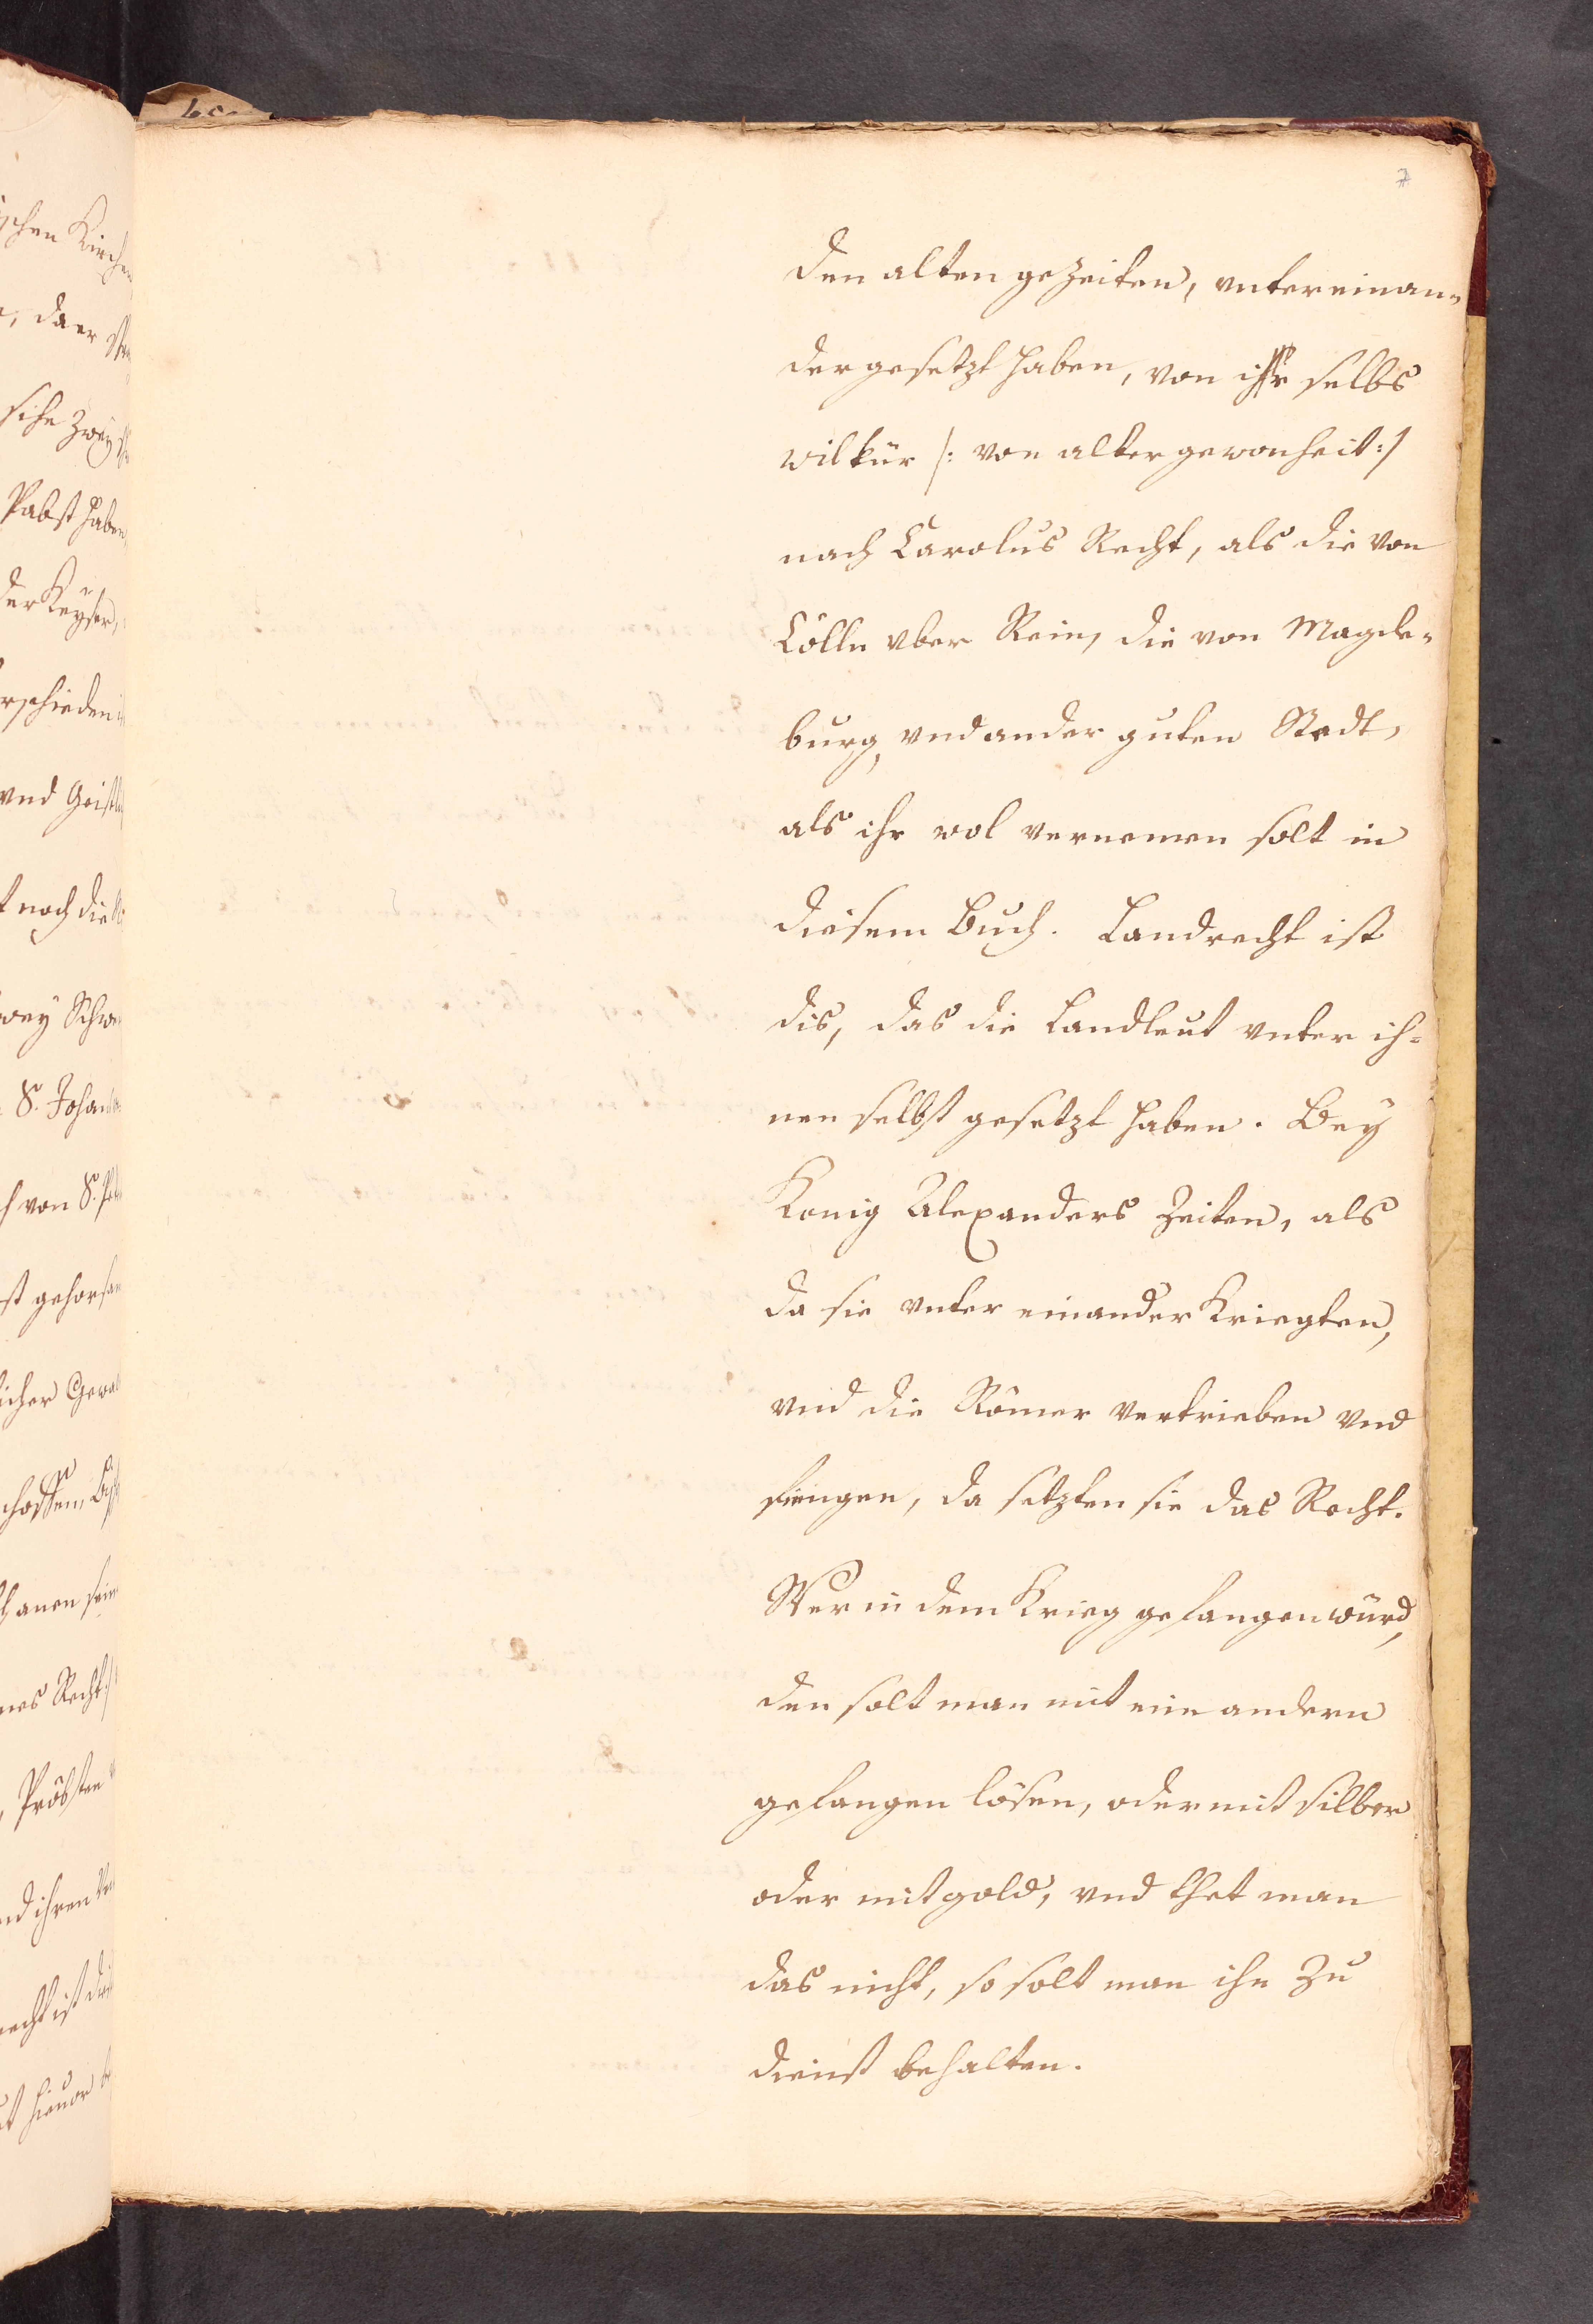 7
den alten gezeiten, vntereinan-
der gesetzt haben, von ihr selbs
wilkür /: von alter gewonheit:/
nach Carolus Recht, als die von
Cölln vber Rein, die von Magde-
burg, vnd ander guten Stedt,
als ihr wol vernemen solt in
diesem Buch. Landrecht ist
dis, das die Landleut vnter ih-
nen selbst gesetzt haben. Bey
Konig Alexanders Zeiten, als
da sie vnter einander Kriegten,
vnd die Römer vertrieben vnd
fiengen, da setzten sie das Recht.
Wer in dem Krieg gefangen würd,
den solt man mit eim andern
gefangen lösen, oder mit silber
oder mit gold, vnd thet man
das nicht, so solt man ihn Zu
dienst behalten.